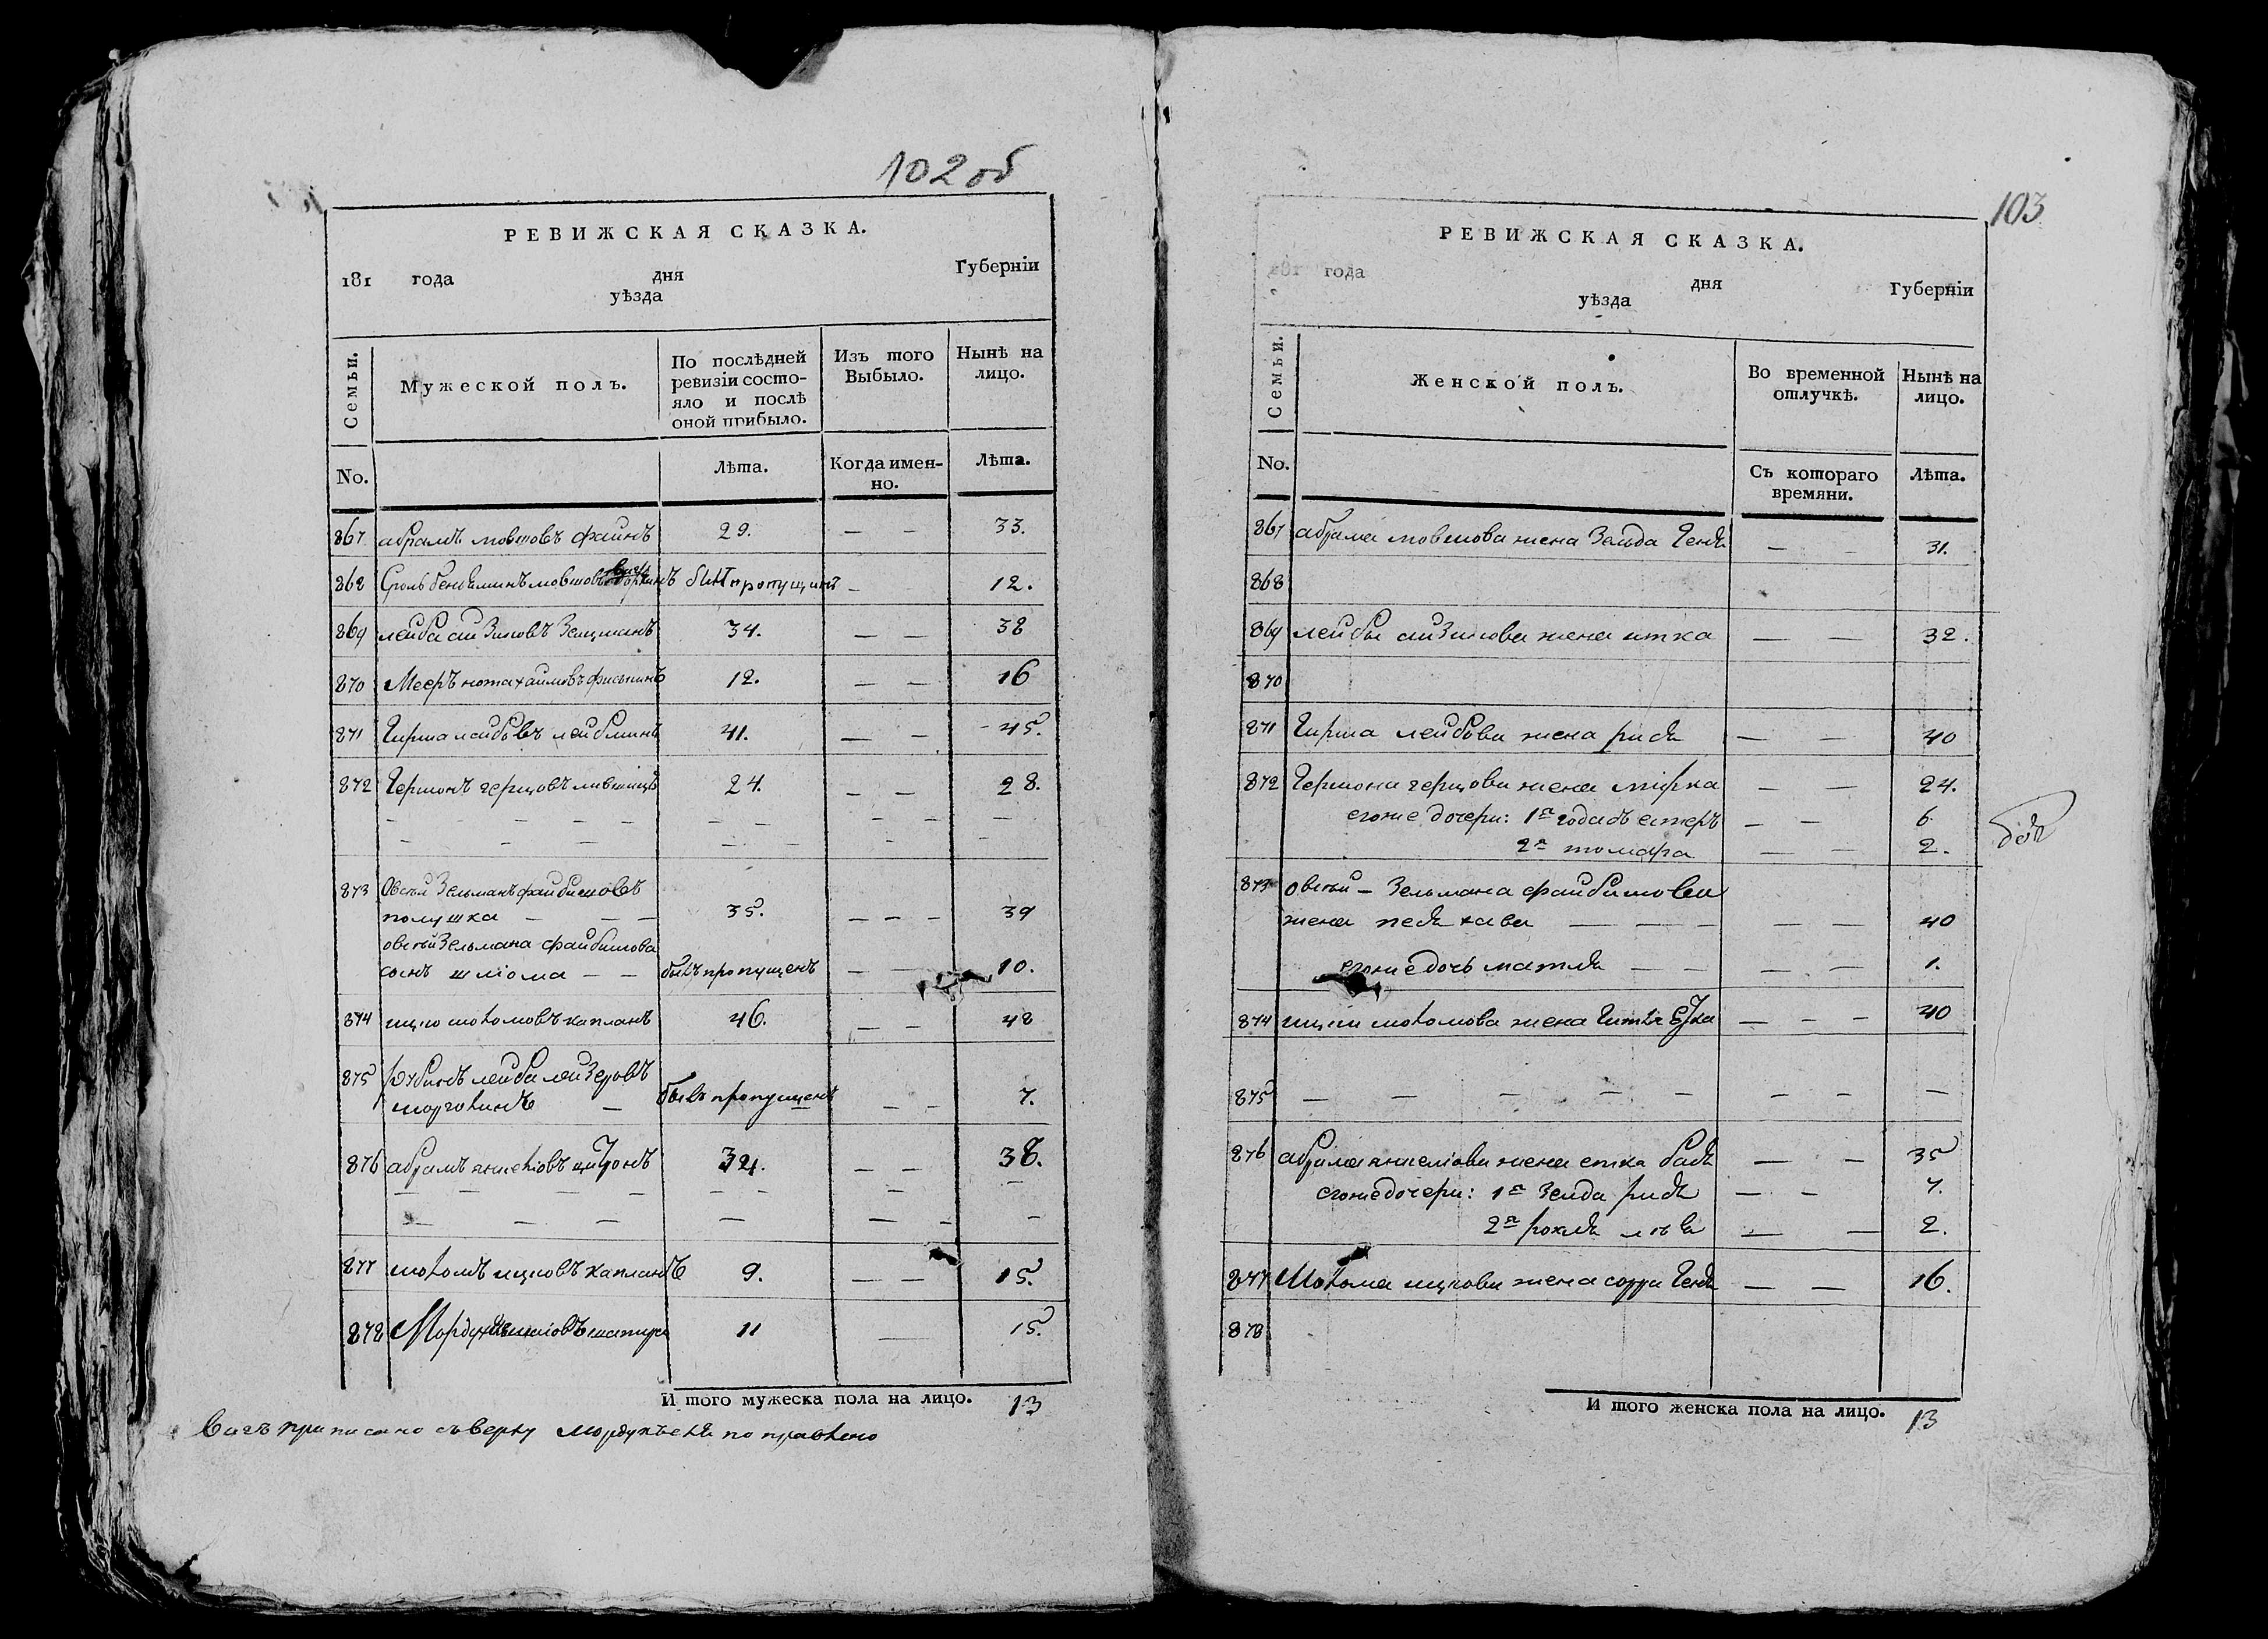 102 об
РЕВИЖСКАЯ СКАЗКА.
181 года дня Губерніи
уѣзда
Семьи.
Мужеской полъ.
По послѣдней ревизіи состо-
яло и послѣ
оной прибыло.
Изъ того
Выбыло.
Нынѣ на
лицо.
No.
Лѣта.
Когда имен-
но.
Лѣта.
867 абрамъ мовшовъ фаинъ 29. — — 33.
868 Сроль бениаминъ мовшовъ пропущенъ — 12.
869 леиба аизиковъ Зелцманъ 34. — — 38
870 Мееръ нота хаимовъ 12. — — 16
871 Гирша леибовъ леибминъ 41. — — 45.
872 Гершонъ герцовъ лившицъ 24. — — 28.
— — — — — — — — — —
— — — — — — —
873 Овсѣй Зельманъ фаибишовъ
полушка — — — 35. — — — 39
овсѣй Зельмана фаибишова
сынъ шліома — — былъ пропущенъ — — 10.
874 ицко шоломовъ капланъ 46. — — 48
875 рубинъ леиба леизеровъ
марголинъ — былъ пропущенъ — — 7.
876 абрамъ янкеліовъ цитронъ 34. — — 38.
— — — — — — — —
— — — — — — —
877 шоломъ ицковъ капланъ 9. — — 15.
878 Мордух 11 — 15.
И того мужеска пола на лицо. 13
вичъ приписано съверху поправлено
103
РЕВИЖСКАЯ СКАЗКА.
181 года дня Губерніи
уѣзда
Семьи.
Женской полъ.
Во временной
отлучкѣ.
Нынѣ на
лицо.
No.
Съ котораго
времяни.
Лѣта.
867 абрама мовшова жена Зельда Генѣ — — 31.
868
869 леибы аизикова жена итка — — 32.
870
871 Гирша леибова жена рися — — 40
872 Гершона герцова жена мірка — — 24.
егоже дочери: 1я годасъ естеръ — — 6
2я томара — — 2.
873 овсѣй — Зельмана фаибишова
жена песя хава — — — — — 40
егоже дочь матля — — — — 1.
874 ицки шоломова жена Гитля — — — 40
875 — — — — — — — —
876 абрама янкеліова жена етка бася — — 35
егоже дочери: 1я Зелда рися — — 7.
2я рохля — — 2.
877 Шолома ицкова жена сорра Геня — — 16.
878
И того женска пола на лицо. 13